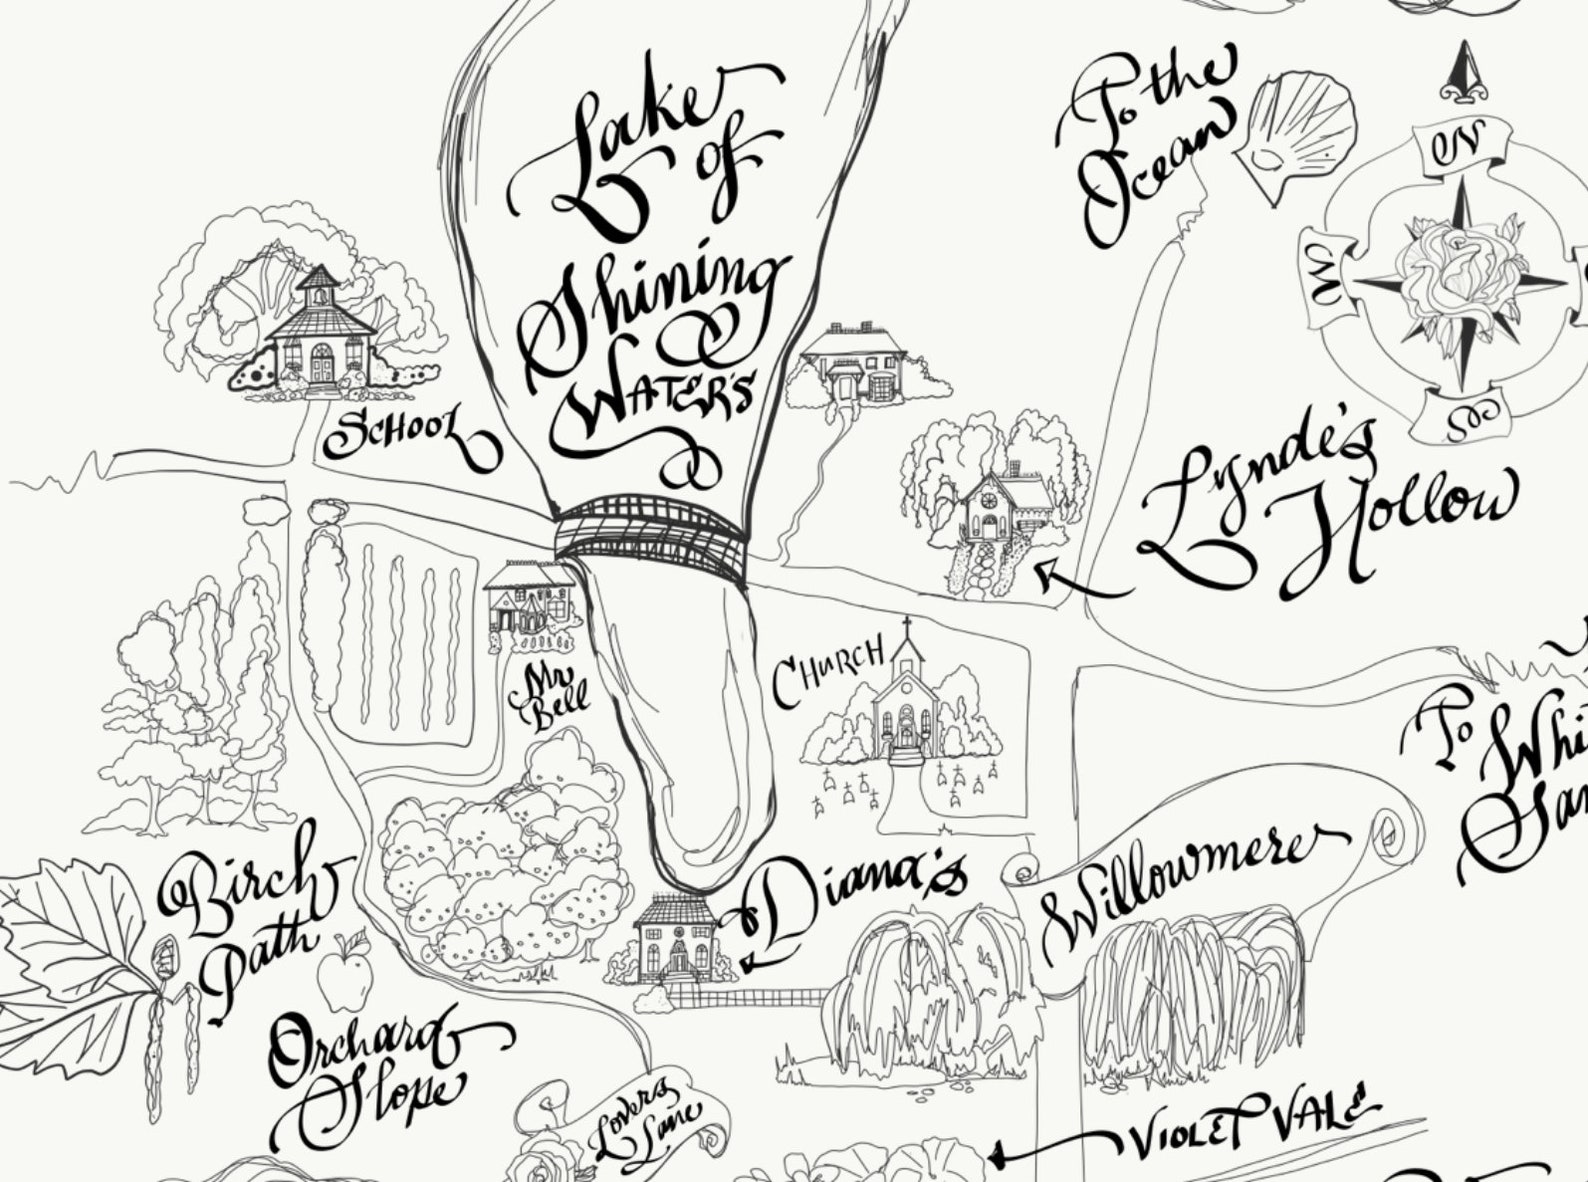 Lake
of
Shining
WATER'S
To the
Ocean
N
W
S
SCHOOL
Lynde's
Hollow
CHURCH
Mr
Bell
To
Birch
Path
Diana's
Willowmere
Orchard
Slope
Lovers
Lane
VIOLET VALE